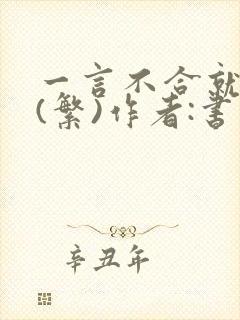 一言不合就
(繁)作者:書
辛丑年